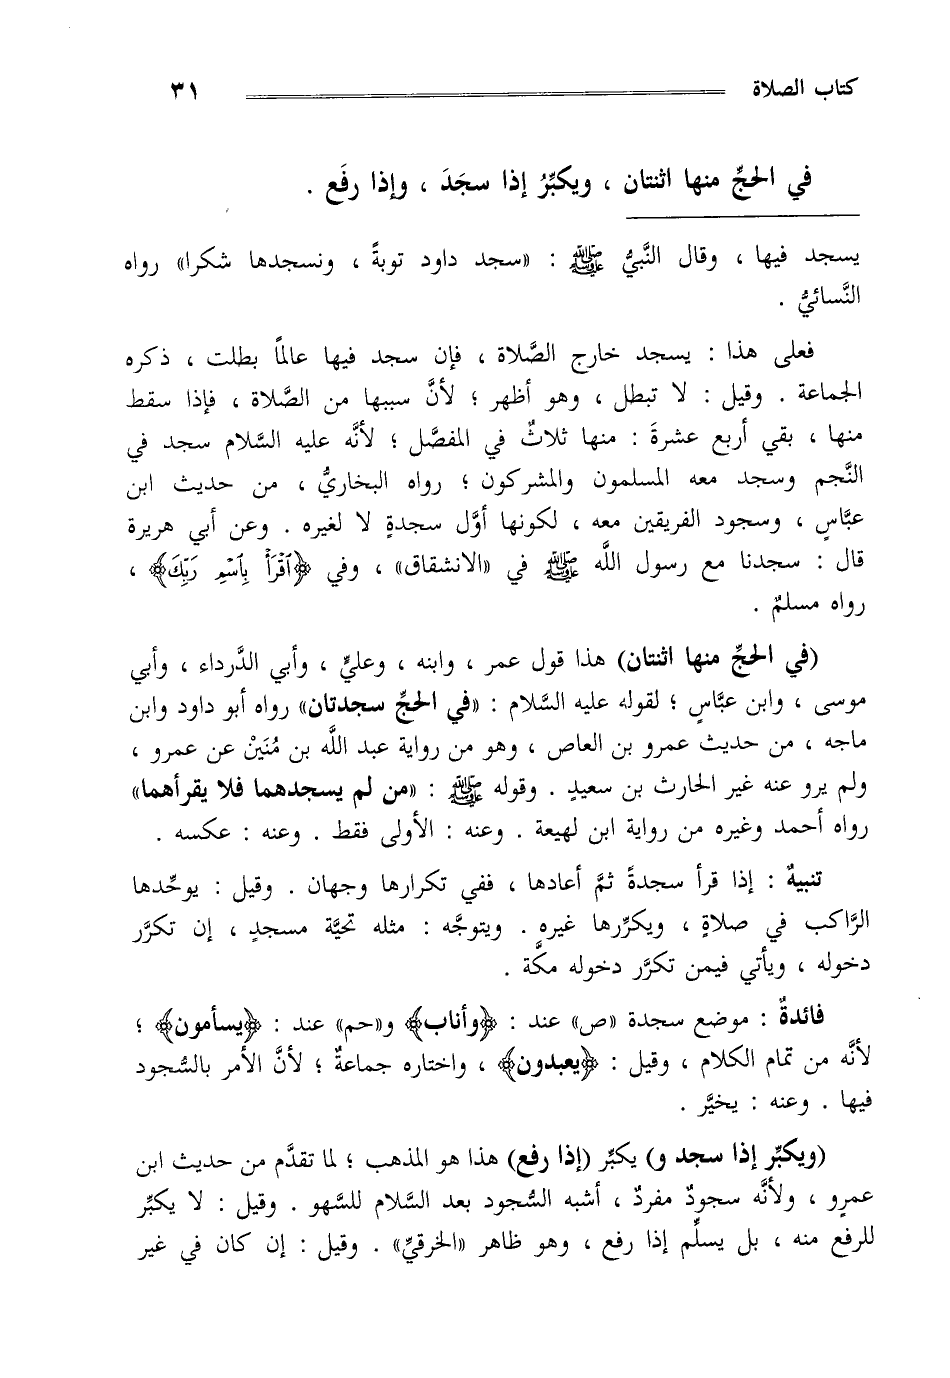 كتاب الصلاة ٣١
في الحجِّ منها اثنتان ، ويكبِّرُ إذا سجَدَ ، وإذا رفَع .
يسجد فيها ، وقال النَّبيُّ ﷺ : «سجد داود توبةً ، ونسجدها شكرا» رواه
النَّسائيُّ .
فعلى هذا : يسجد خارج الصَّلاة ، فإن سجد فيها عالماً بطلت ، ذكره
الجماعة . وقيل : لا تبطل ، وهو أظهر ؛ لأنَّ سببها من الصَّلاة ، فإذا سقط
منها ، بقي أربع عشرةَ : منها ثلاثٌ في المفصَّل ؛ لأنَّه عليه السَّلام سجد في
النَّجم وسجد معه المسلمون والمشركون ؛ رواه البخاريُّ ، من حديث ابن
عبَّاسٍ ، وسجود الفريقين معه ، لكونها أوَّل سجدةٍ لا لغيره . وعن أبي هريرة
قال : سجدنا مع رسول اللَّه ﷺ في «الانشقاق» ، وفي ﴿ٱقْرَأْ بِٱسْمِ رَبِّكَ﴾ ،
رواه مسلمٌ .
(في الحجِّ منها اثنتان) هذا قول عمر ، وابنه ، وعليٍّ ، وأبي الدَّرداء ، وأبي
موسى ، وابن عبَّاسٍ ؛ لقوله عليه السَّلام : «في الحجِّ سجدتان» رواه أبو داود وابن
ماجه ، من حديث عمرو بن العاص ، وهو من رواية عبد اللَّه بن مُنَيْنْ عن عمرو ،
ولم يرو عنه غير الحارث بن سعيدٍ . وقوله ﷺ : «من لم يسجدهما فلا يقرأهما»
رواه أحمد وغيره من رواية ابن لهيعة . وعنه : الأولى فقط . وعنه : عكسه .
تنبيهٌ : إذا قرأ سجدةً ثمَّ أعادها ، ففي تكرارها وجهان . وقيل : يوحِّدها
الرَّاكب في صلاةٍ ، ويكرِّرها غيره . ويتوجَّه : مثله تحيَّة مسجدٍ ، إن تكرَّر
دخوله ، ويأتي فيمن تكرَّر دخوله مكَّة .
فائدةٌ : موضع سجدة «ص» عند : ﴿وأناب﴾ و«حم» عند : ﴿يسأمون﴾ ؛
لأنَّه من تمام الكلام ، وقيل : ﴿يعبدون﴾ ، واختاره جماعةٌ ؛ لأنَّ الأمر بالسُّجود
فيها . وعنه : يخيَّر .
(ويكبِّر إذا سجد و) يكبِّر (إذا رفع) هذا هو المذهب ؛ لما تقدَّم من حديث ابن
عمرو ، ولأنَّه سجودٌ مفردٌ ، أشبه السُّجود بعد السَّلام للسَّهو . وقيل : لا يكبِّر
للرفع منه ، بل يسلِّم إذا رفع ، وهو ظاهر «الخرقيِّ» . وقيل : إن كان في غير